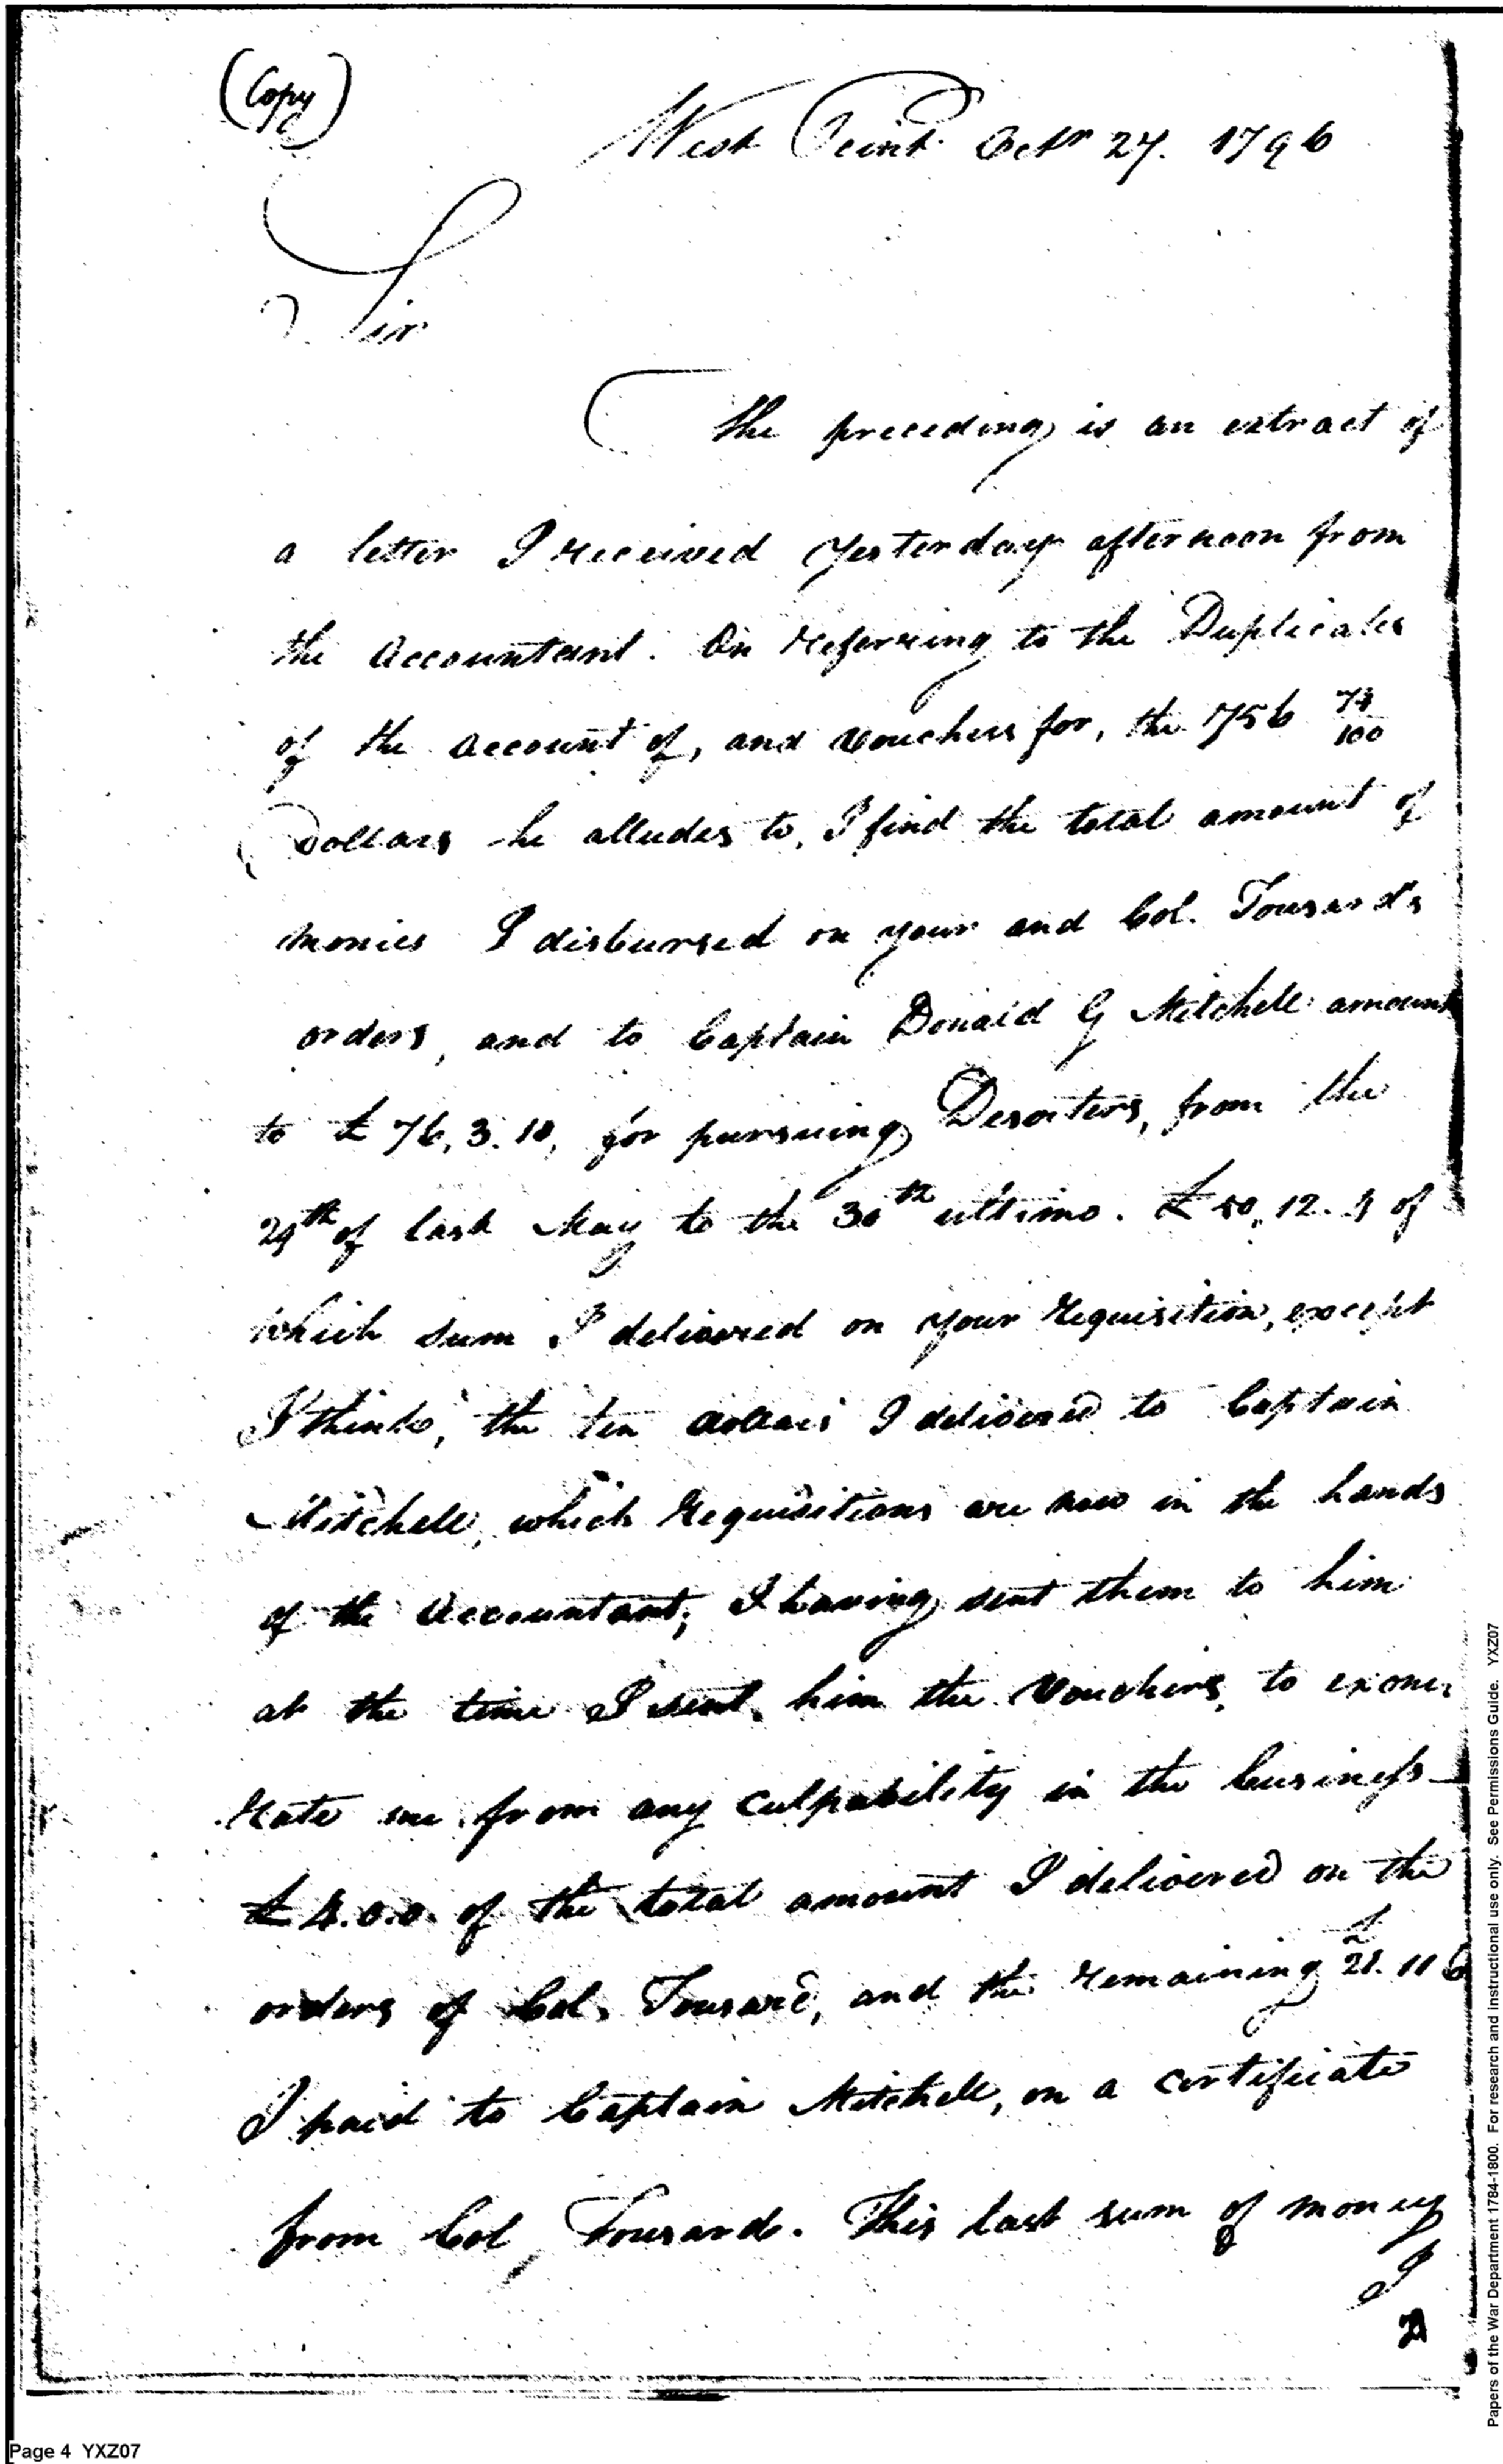 (Copy)
West Point Octr 27. 1796
Sir
The preceding is an extract of
a letter I received yesterday afternoon from
the Accountant. On referring to the Duplicates
of the account of, and vouchers for, the 756 74/100
Dollars he alludes to, I find the total amount of
monies I disbursed on your and Col. Tousard's
orders, and to Captain Donald G Mitchell amount
to £ 76,3.10, for pursuing Deserters, from the
29th of last May to the 30th ultimo. £ 50,12.4 of
which sum I delivered on your requisition, except
I think, the ten dollars I delivered to Captain
Mitchell, which requisitions are now in the hands
of the Accountant; I having sent them to him
at the time I sent him the Vouchers, to exone,
rate me from any culpability in the business
£ 4.0.0. of the total amount I delivered on the
orders of Col. Tousard, and the remaining £ 21.11 6
I paid to Captain Mitchell, on a certificate
from Col, Tousard. This last sum of money
I
Page 4 YXZ07
Papers of the War Department 1784-1800. For research and instructional use only. See Permissions Guide. YXZ07